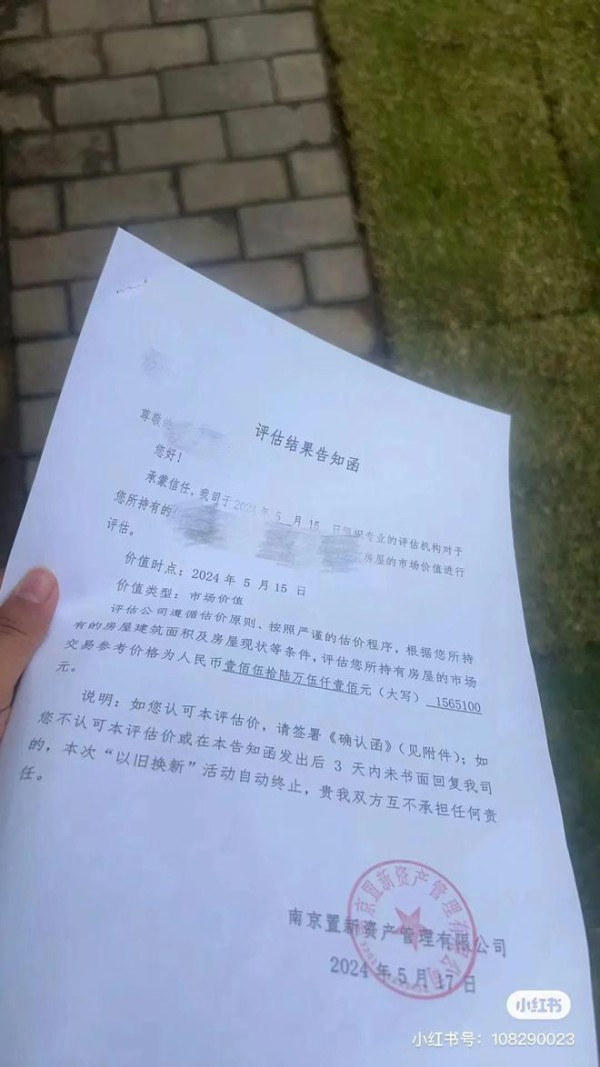 评估结果告知函
尊敬的
您好！
承蒙信任，我司于2024年5月15日组织专业的评估机构对于
您所持有的 房屋的市场价值进行
评估。
价值时点：2024年5月15日
价值类型：市场价值
评估公司遵循估价原则、按照严谨的估价程序，根据您所持
有的房屋建筑面积及房屋现状等条件，评估您所持有房屋的市场
交易参考价格为人民币壹佰伍拾陆万伍仟壹佰元（大写）1565100
元。
说明：如您认可本评估价，请签署《确认函》（见附件）；如
您不认可本评估价或在本告知函发出后 3 天内未书面回复我司
的，本次“以旧换新”活动自动终止，贵我双方互不承担任何责
任。
南京置新资产管理有限公司
2024年5月17日
南京置新资产管理有限公司
小红书
小红书号：108290023